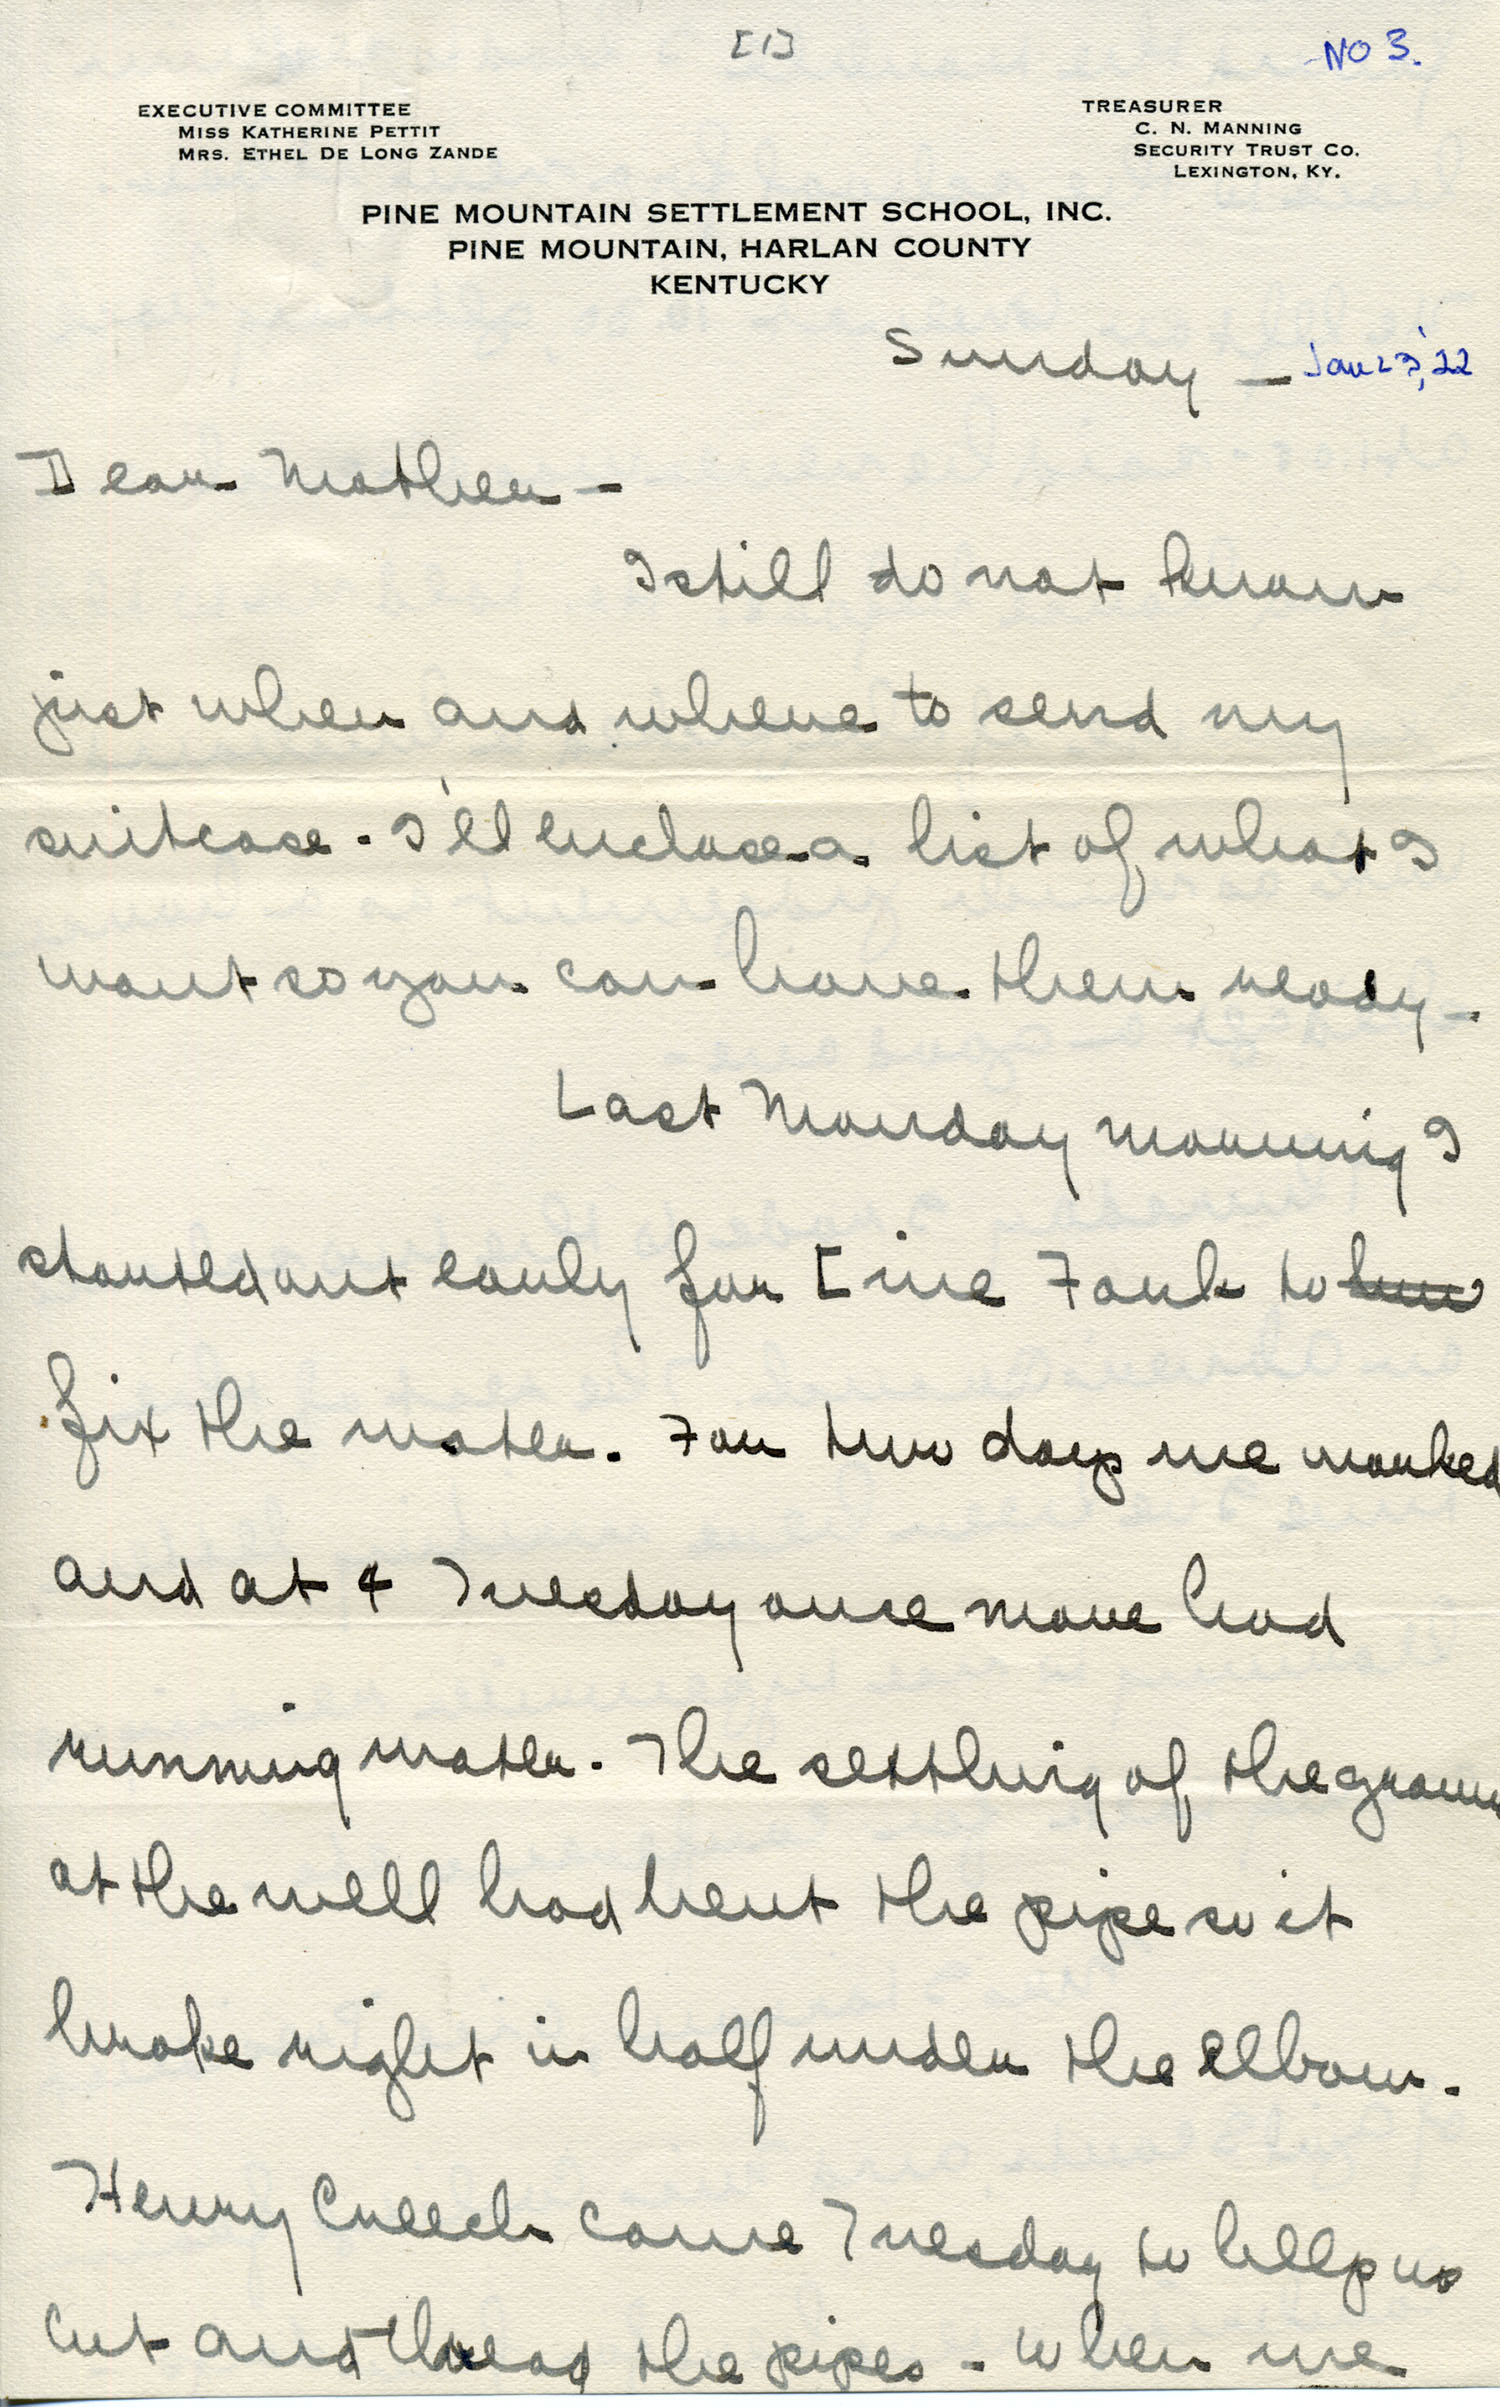 [1]
NO 3.
EXECUTIVE COMMITTEE
MISS KATHERINE PETTIT
MRS. ETHEL DE LONG ZANDE
TREASURER
C. N. MANNING
SECURITY TRUST CO.
LEXINGTON, KY.
PINE MOUNTAIN SETTLEMENT SCHOOL, INC.
PINE MOUNTAIN, HARLAN COUNTY
KENTUCKY
Sunday – Jan 23, '22
Dear Mother –
I still do not know
just when and where to send my
suitcase. I'll enclose a list of what I
want so you can have them ready –
Last Monday morning I
started out early for Line Fork to
fix the water. For two days we worked
and at 4 Tuesday once more had
running water. The settling of the
at the well had bent the pipe so it
broke right in half under the elbow.
Henry Creech came Tuesday to help us
cut and thread the pipes – When we